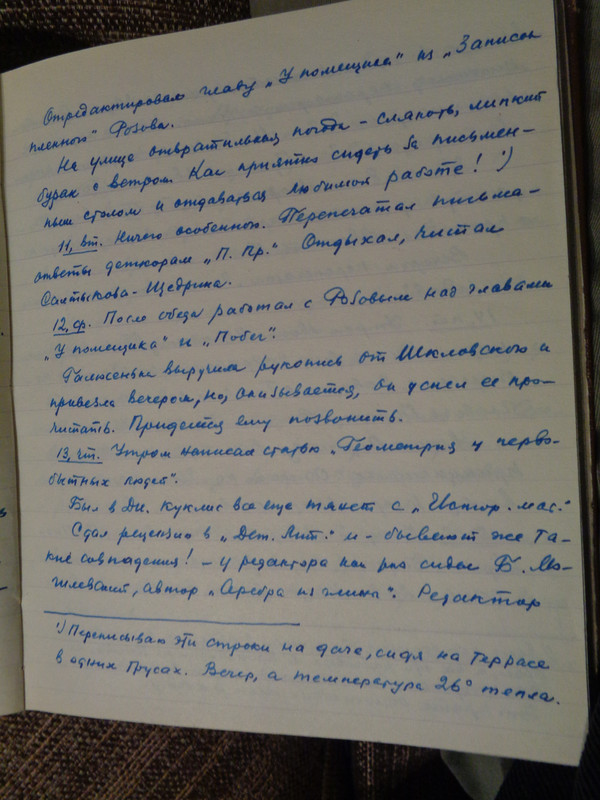 Отредактировал главу „У помещика" из „Записок
пленного" Фобова.
На улице отвратильная погода – слякоть, липкий
буран с ветром. Как приятно сидеть за письмен-
ным столом и отдаваться любимой работе! ¹)
11, вт. Ничего особенного. Перепечатал письма-
ответы деткорам „П. Пр." Отдыхал, читал
Салтыкова-Щедрина.
12, ср. После обеда работал с Фобовым над главами
„У помещика" и „Побег".
Галюсенька выручила рукопись от Шкловского и
привезла вечером, но, оказывается, он успел ее про-
читать. Придется ему позвонить.
13, чт. Утром написал статью „Геометрия у перво-
бытных людей".
Был в Дн. Куклис все еще тянет с „Истор. мас."
Сдал рецензию в „Дет. Лит." и – бывают же та-
кие совпадения! – у редактора как раз сидел Б. Мо-
гилевский, автор „Серебра из глины". Редактор
¹) Переписываю эти строки на даче, сидя на террасе
в одних трусах. Вечер, а температура 26° тепла.